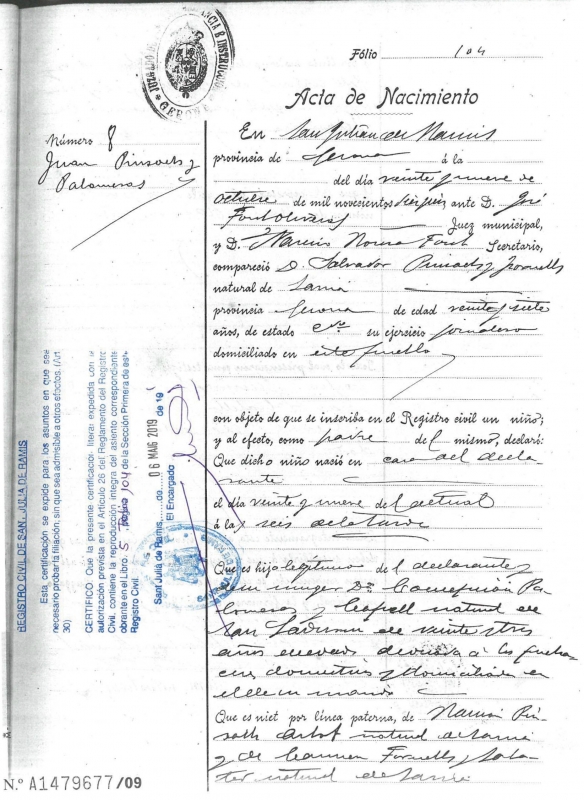 JUZGADO DE INSTANCIA É INSTRUCCIÓN
* GERONA *
Fólio 104
Acta de Nacimiento
Número 8
Juan Pinsach y
Palomeras
En San Julian de Ramis
provincia de Gerona á la
del día veinte y nueve de
octubre de mil novecientos seis, ante D. José
Font Juez municipal,
y D. Narciso Font Secretario,
compareció D. Salvador Pinsach y Fornells
natural de Sarriá
provincia Gerona de edad veinte y siete
años, de estado su ejercicio jornalero
domiciliado en este pueblo
con objeto de que se inscriba en el Registro civil un niño;
y al efecto, como padre del mismo, declaró:
Que dicho niño nació en casa del decla
rante
el día veinte y nueve del actual
á las seis de la tarde
Que es hijo legítimo del declarante y
su mujer Dª Concepción Pa
lomeras y natural de
San de veinte tres
años dedicada á las
domésticas y domiciliada en
el de su marido
Que es niet por línea paterna, de Narciso Pin
sach natural de Sarriá
y de Carmen Fornells y
natural de Sarriá
REGISTRO CIVIL DE SAN JULIA DE RAMIS
Esta certificación se expide para los asuntos en que sea
necesario probar la filiación, sin que sea admisible a otros efectos. (Art
30)
CERTIFICO: Que la presente certificación literal expedida con la
autorización prevista en el Artículo 26 del Reglamento del Registro
Civil, contiene la reproducción íntegra del asiento correspondiente
obrante en el Libro 5 folio 104 de la Sección Primera de este
Registro Civil.
Sant Julià de Ramis, 06 MAIG 2019 de 19
El Encargado
N.º A1479677/09